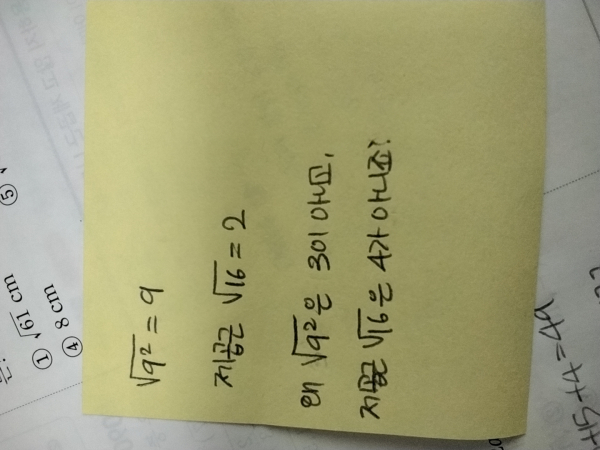 √9² = 9
제곱근 √16 = 2
왜 √9²은 3이 아니고,
제곱근 √16은 4가 아니죠?
① √61 cm
④ 8 cm
⑤